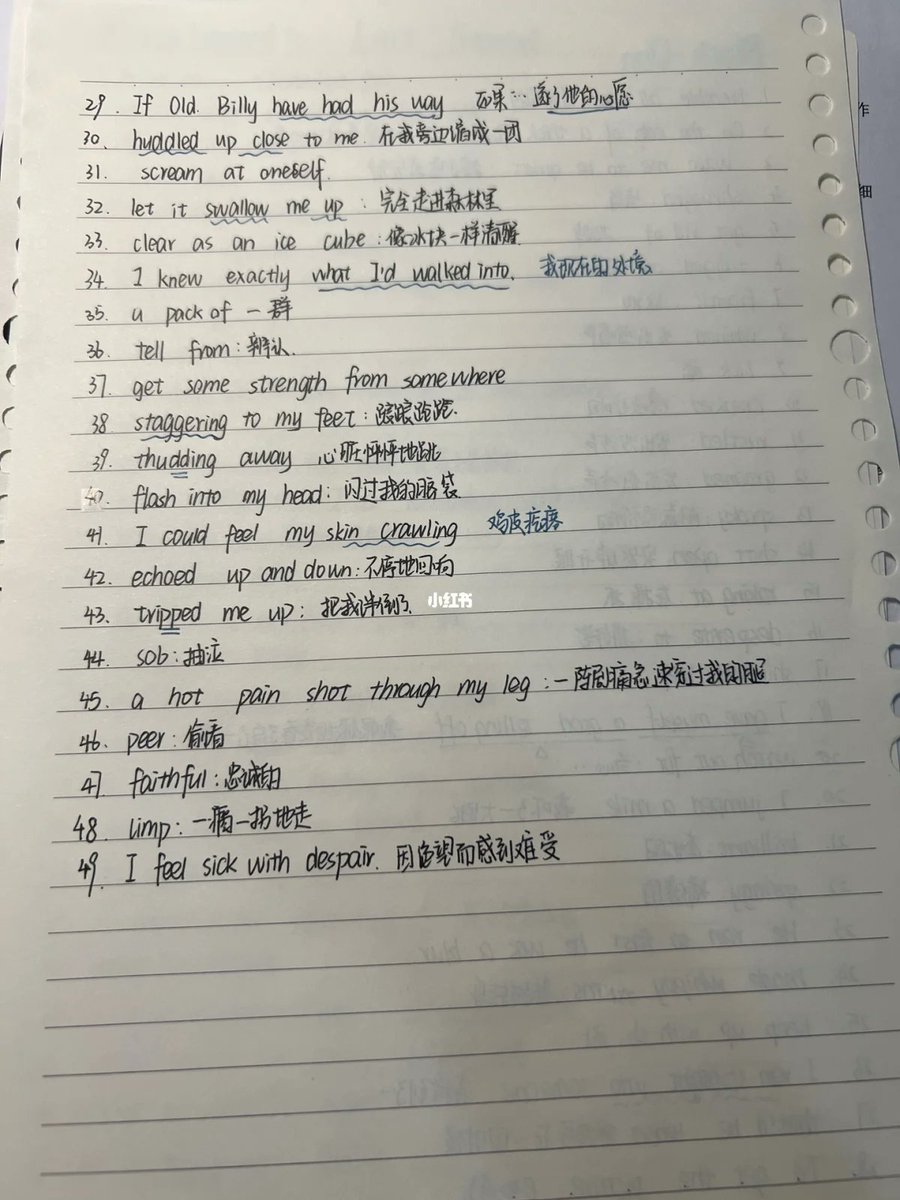 29. If Old. Billy have had his way 如果…遂了他的心愿
30. huddled up close to me. 在我旁边缩成一团
31. scream at oneself.
32. let it swallow me up : 完全走进森林里
33. clear as an ice cube : 像冰块一样清醒
34. I knew exactly what I'd walked into. 我所在的处境
35. a pack of 一群
36. tell from : 辨认.
37. get some strength from somewhere
38. staggering to my feet : 踉踉跄跄.
39. thudding away 心脏怦怦地跳
40. flash into my head : 闪过我的脑袋
41. I could feel my skin crawling 鸡皮疙瘩
42. echoed up and down : 不停地回响
43. tripped me up : 把我绊倒了.
小红书
44. sob : 抽泣
45. a hot pain shot through my leg : 一阵剧痛急速穿过我的腿
46. peer : 偷看
47. faithful : 忠诚的
48. limp : 一瘸一拐地走
49. I feel sick with despair. 因绝望而感到难受
作
细